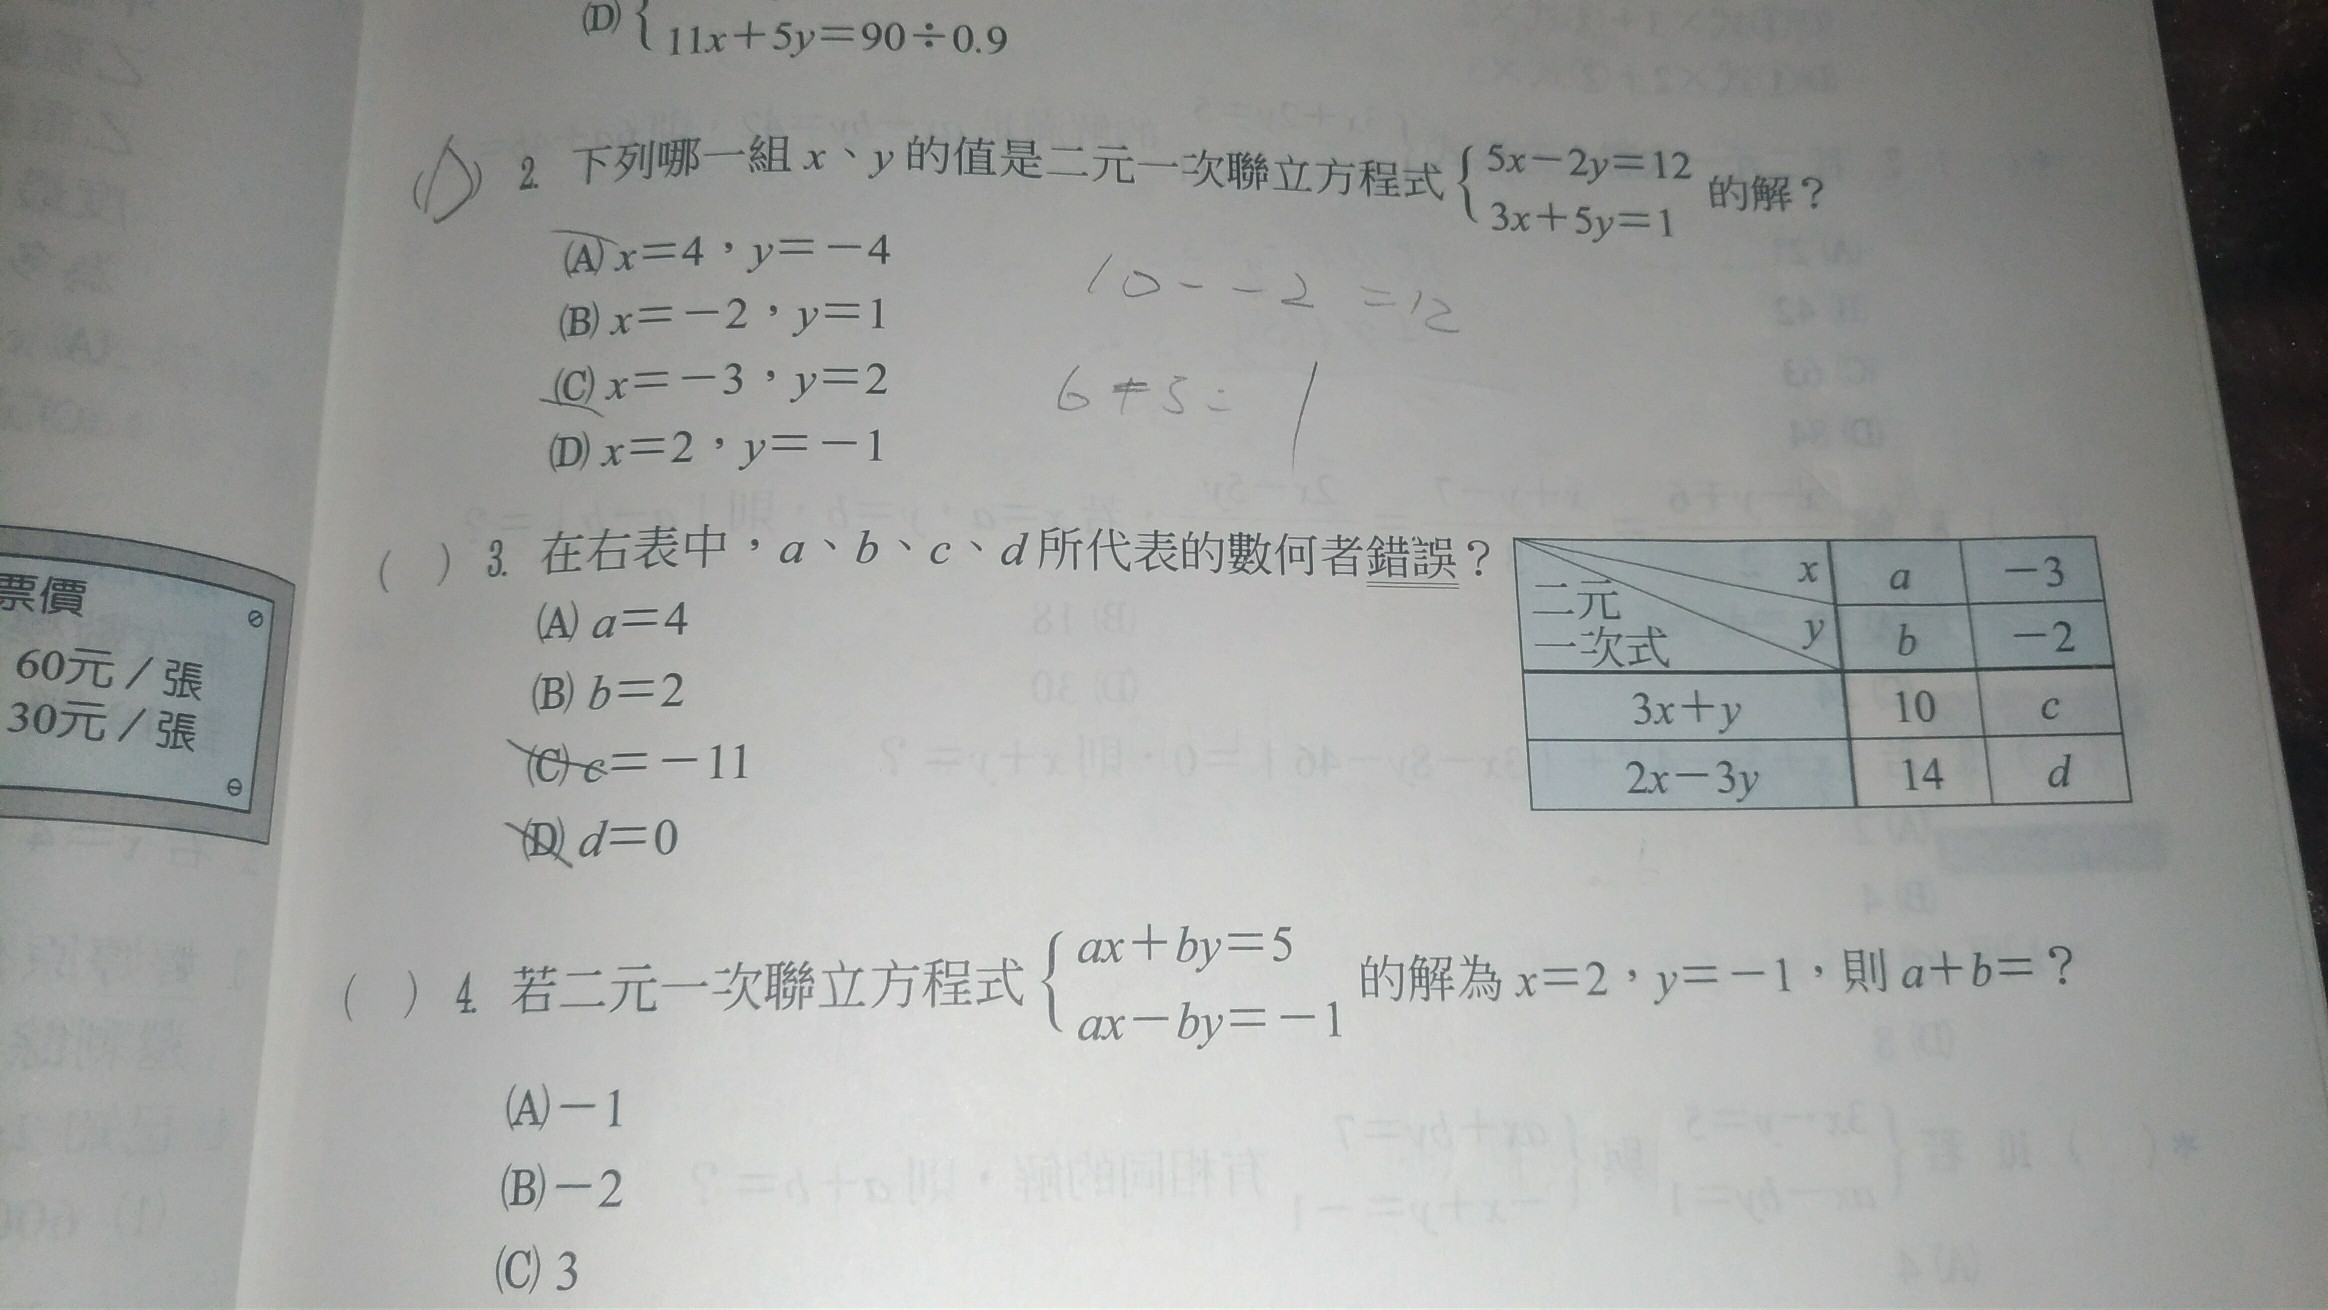 (D) {
11x+5y=90÷0.9
(D) 2. 下列哪一組 x、y 的值是二元一次聯立方程式 { 5x−2y=12
3x+5y=1 的解？
(A) x=4，y=−4
(B) x=−2，y=1
(C) x=−3，y=2
(D) x=2，y=−1
10--2=12
( ) 3. 在右表中，a、b、c、d 所代表的數何者錯誤？
(A) a=4
(B) b=2
(C) c=−11
(D) d=0
x a −3
二元
一次式 y b −2
3x+y 10 c
2x−3y 14 d
( ) 4. 若二元一次聯立方程式 { ax+by=5
ax−by=−1 的解為 x=2，y=−1，則 a+b=？
(A) −1
(B) −2
(C) 3
票價
60元／張
30元／張